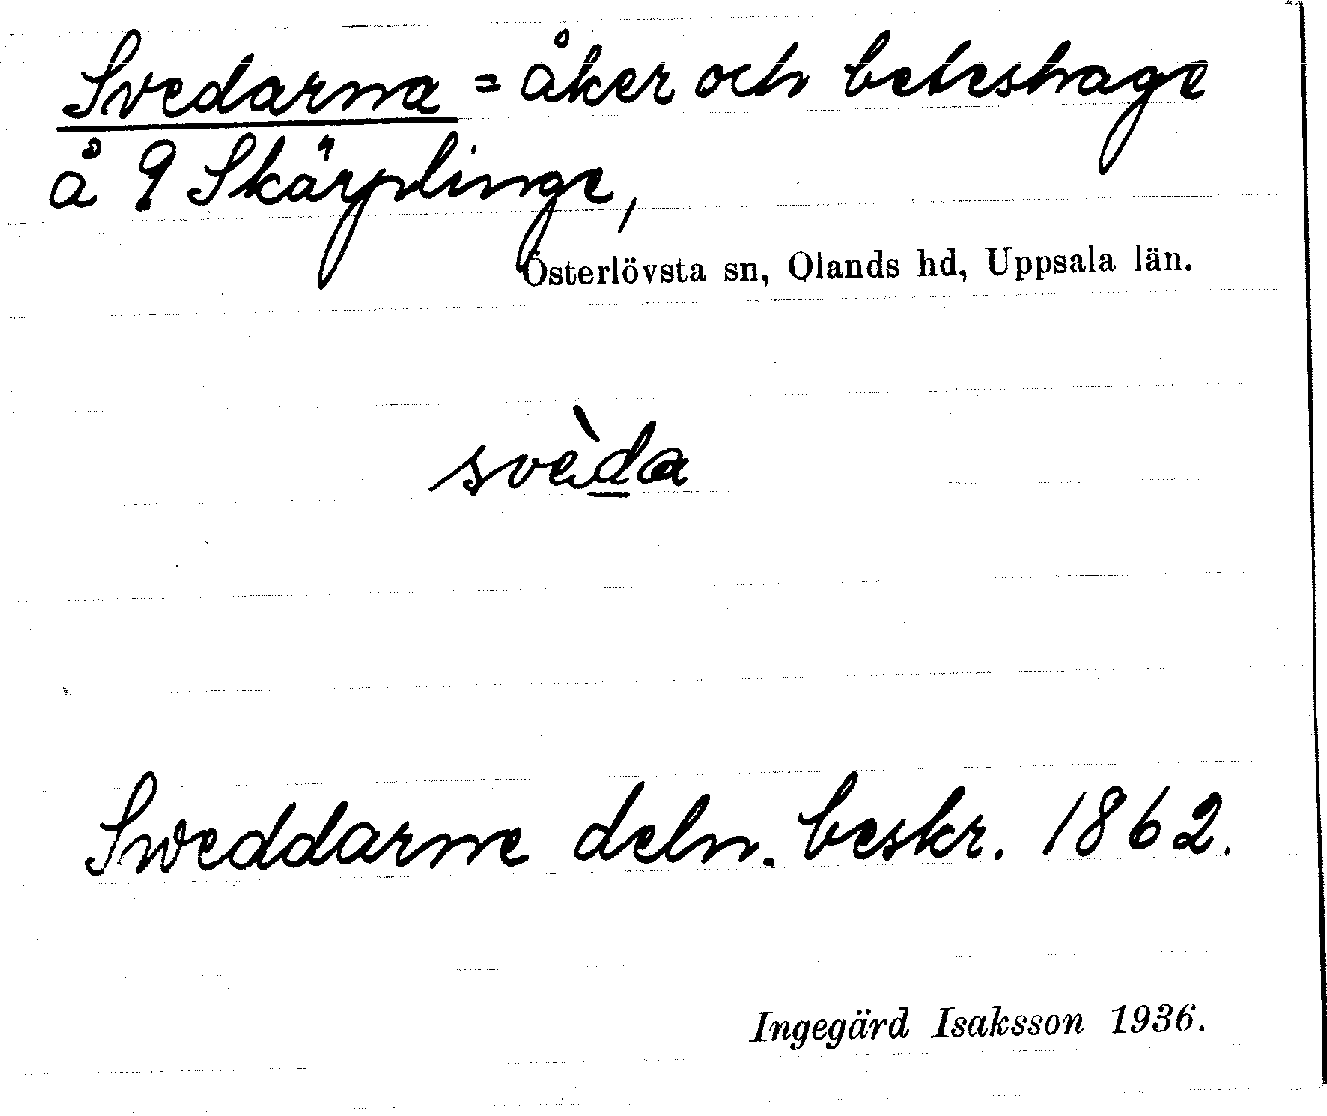 Svedarna = åker och beteshage
å 9 Skärplinge,
Österlövsta sn, Olands hd, Uppsala län.
svèda
Sweddarne deln. beskr. 1862.
Ingegärd Isaksson 1936.